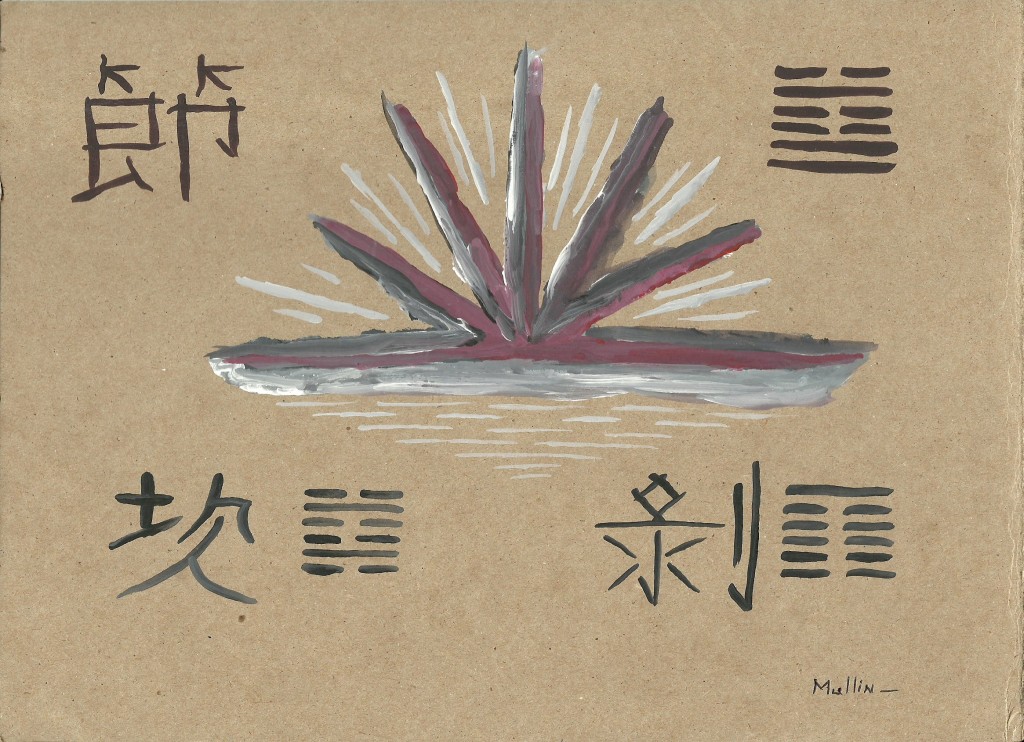 節
坎 剝
Mullin